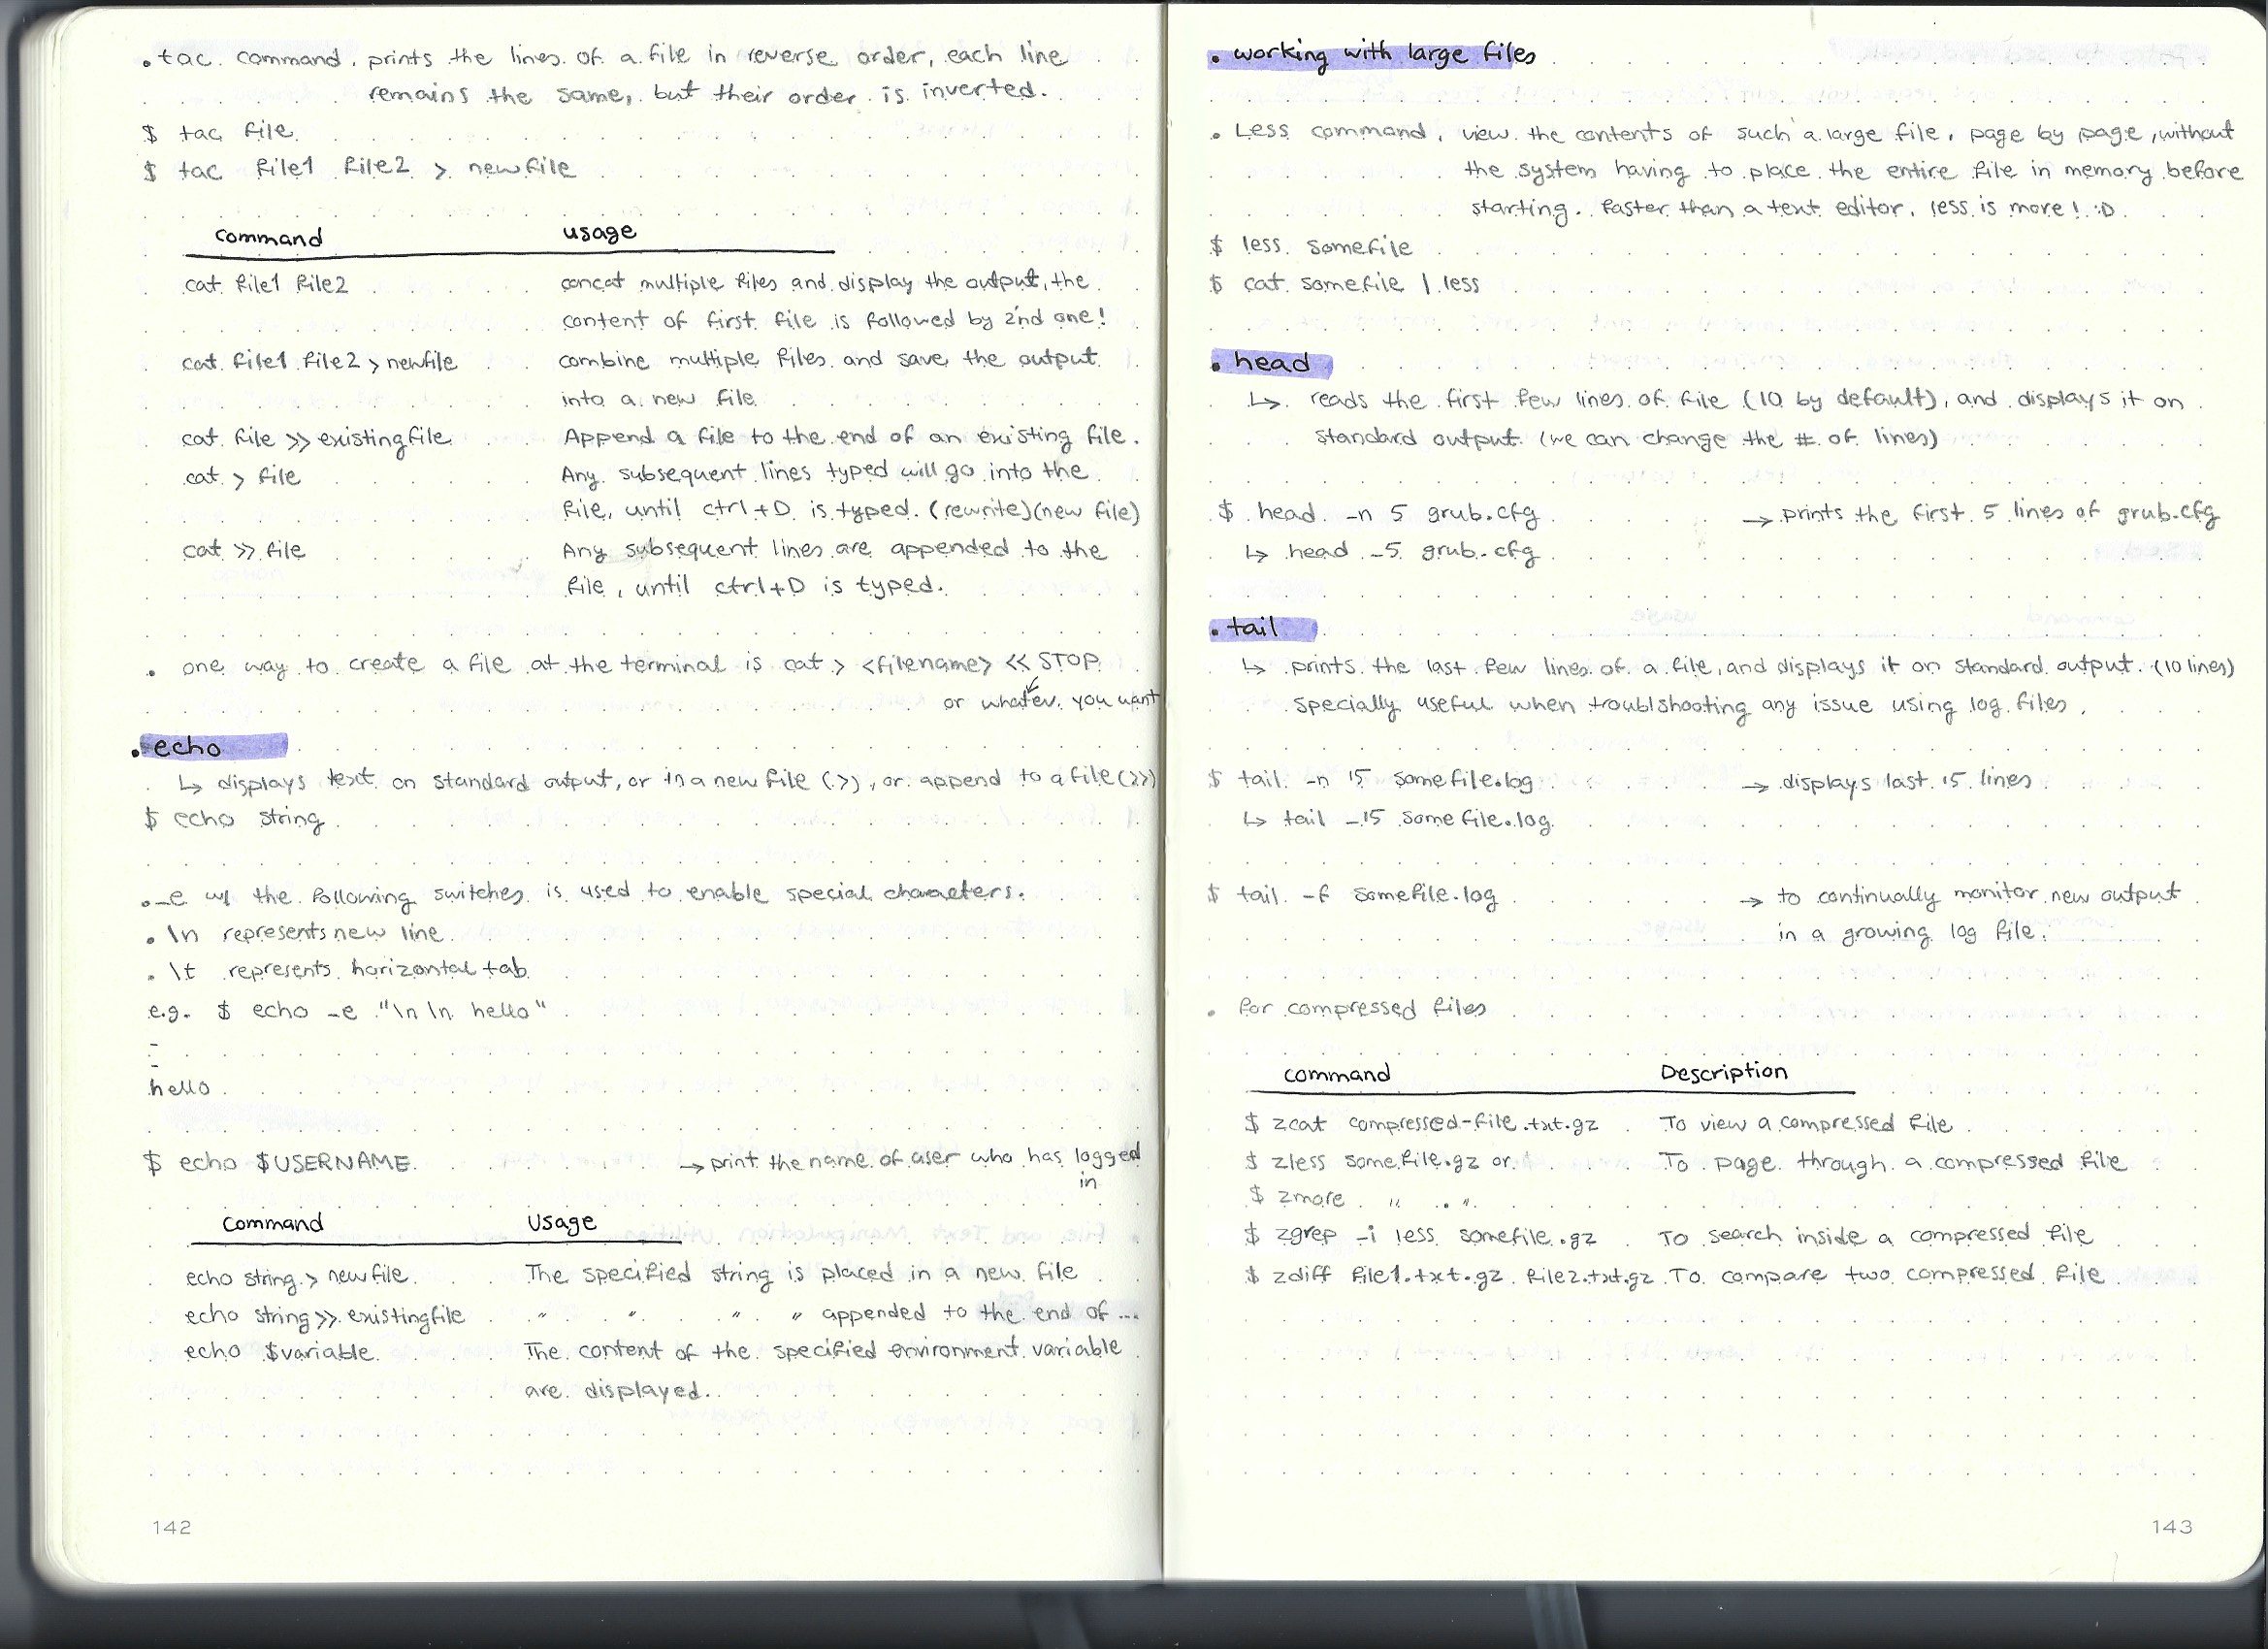 . tac command. prints the lines of a file in reverse order, each line
remains the same, but their order is inverted.
$ tac file
$ tac file1 file2 > newfile
command usage
cat file1 file2 concat multiple files and display the output, the
content of first file is followed by 2nd one!
cat file1 file2 > newfile combine multiple files and save the output
into a new file
cat file >> existingfile Append a file to the end of an existing file.
cat > file Any subsequent lines typed will go into the
file, until ctrl+D is typed. (rewrite)(new file)
cat >> file Any subsequent lines are appended to the
file, until ctrl+D is typed.
. one way to create a file at the terminal is cat > <filename> << STOP
or whatev. you want
. echo
↳ displays text on standard output, or in a new file (>), or append to a file (>>)
$ echo string
. -e w/ the following switches is used to enable special characters.
. \n represents new line
. \t represents horizontal tab
e.g. $ echo -e "\n \n hello"
-
-
hello
$ echo $USERNAME → print the name of user who has logged
in
command Usage
echo string > newfile The specified string is placed in a new file
echo string >> existingfile " " " " appended to the end of ...
echo $variable The content of the specified environment variable
are displayed.
142
. working with large files
. Less command. view the contents of such a large file, page by page, without
the system having to place the entire file in memory before
starting. faster than a text editor. less is more! :D
$ less somefile
$ cat somefile | less
. head
↳ reads the first few lines of file (10 by default), and displays it on
standard output (we can change the # of lines)
$ head -n 5 grub.cfg → prints the first 5 lines of grub.cfg
↳ head -5 grub.cfg
. tail
↳ prints the last few lines of a file, and displays it on standard output. (10 lines)
specially useful when troublshooting any issue using log files.
$ tail -n 15 somefile.log → displays last 15 lines
↳ tail -15 somefile.log
$ tail -f somefile.log → to continually monitor new output
in a growing log file.
. for compressed files
command Description
$ zcat compressed-file.txt.gz To view a compressed file
$ zless somefile.gz or To page through a compressed file
$ zmore " . "
$ zgrep -i less somefile.gz To search inside a compressed file
$ zdiff file1.txt.gz file2.txt.gz To compare two compressed file
143